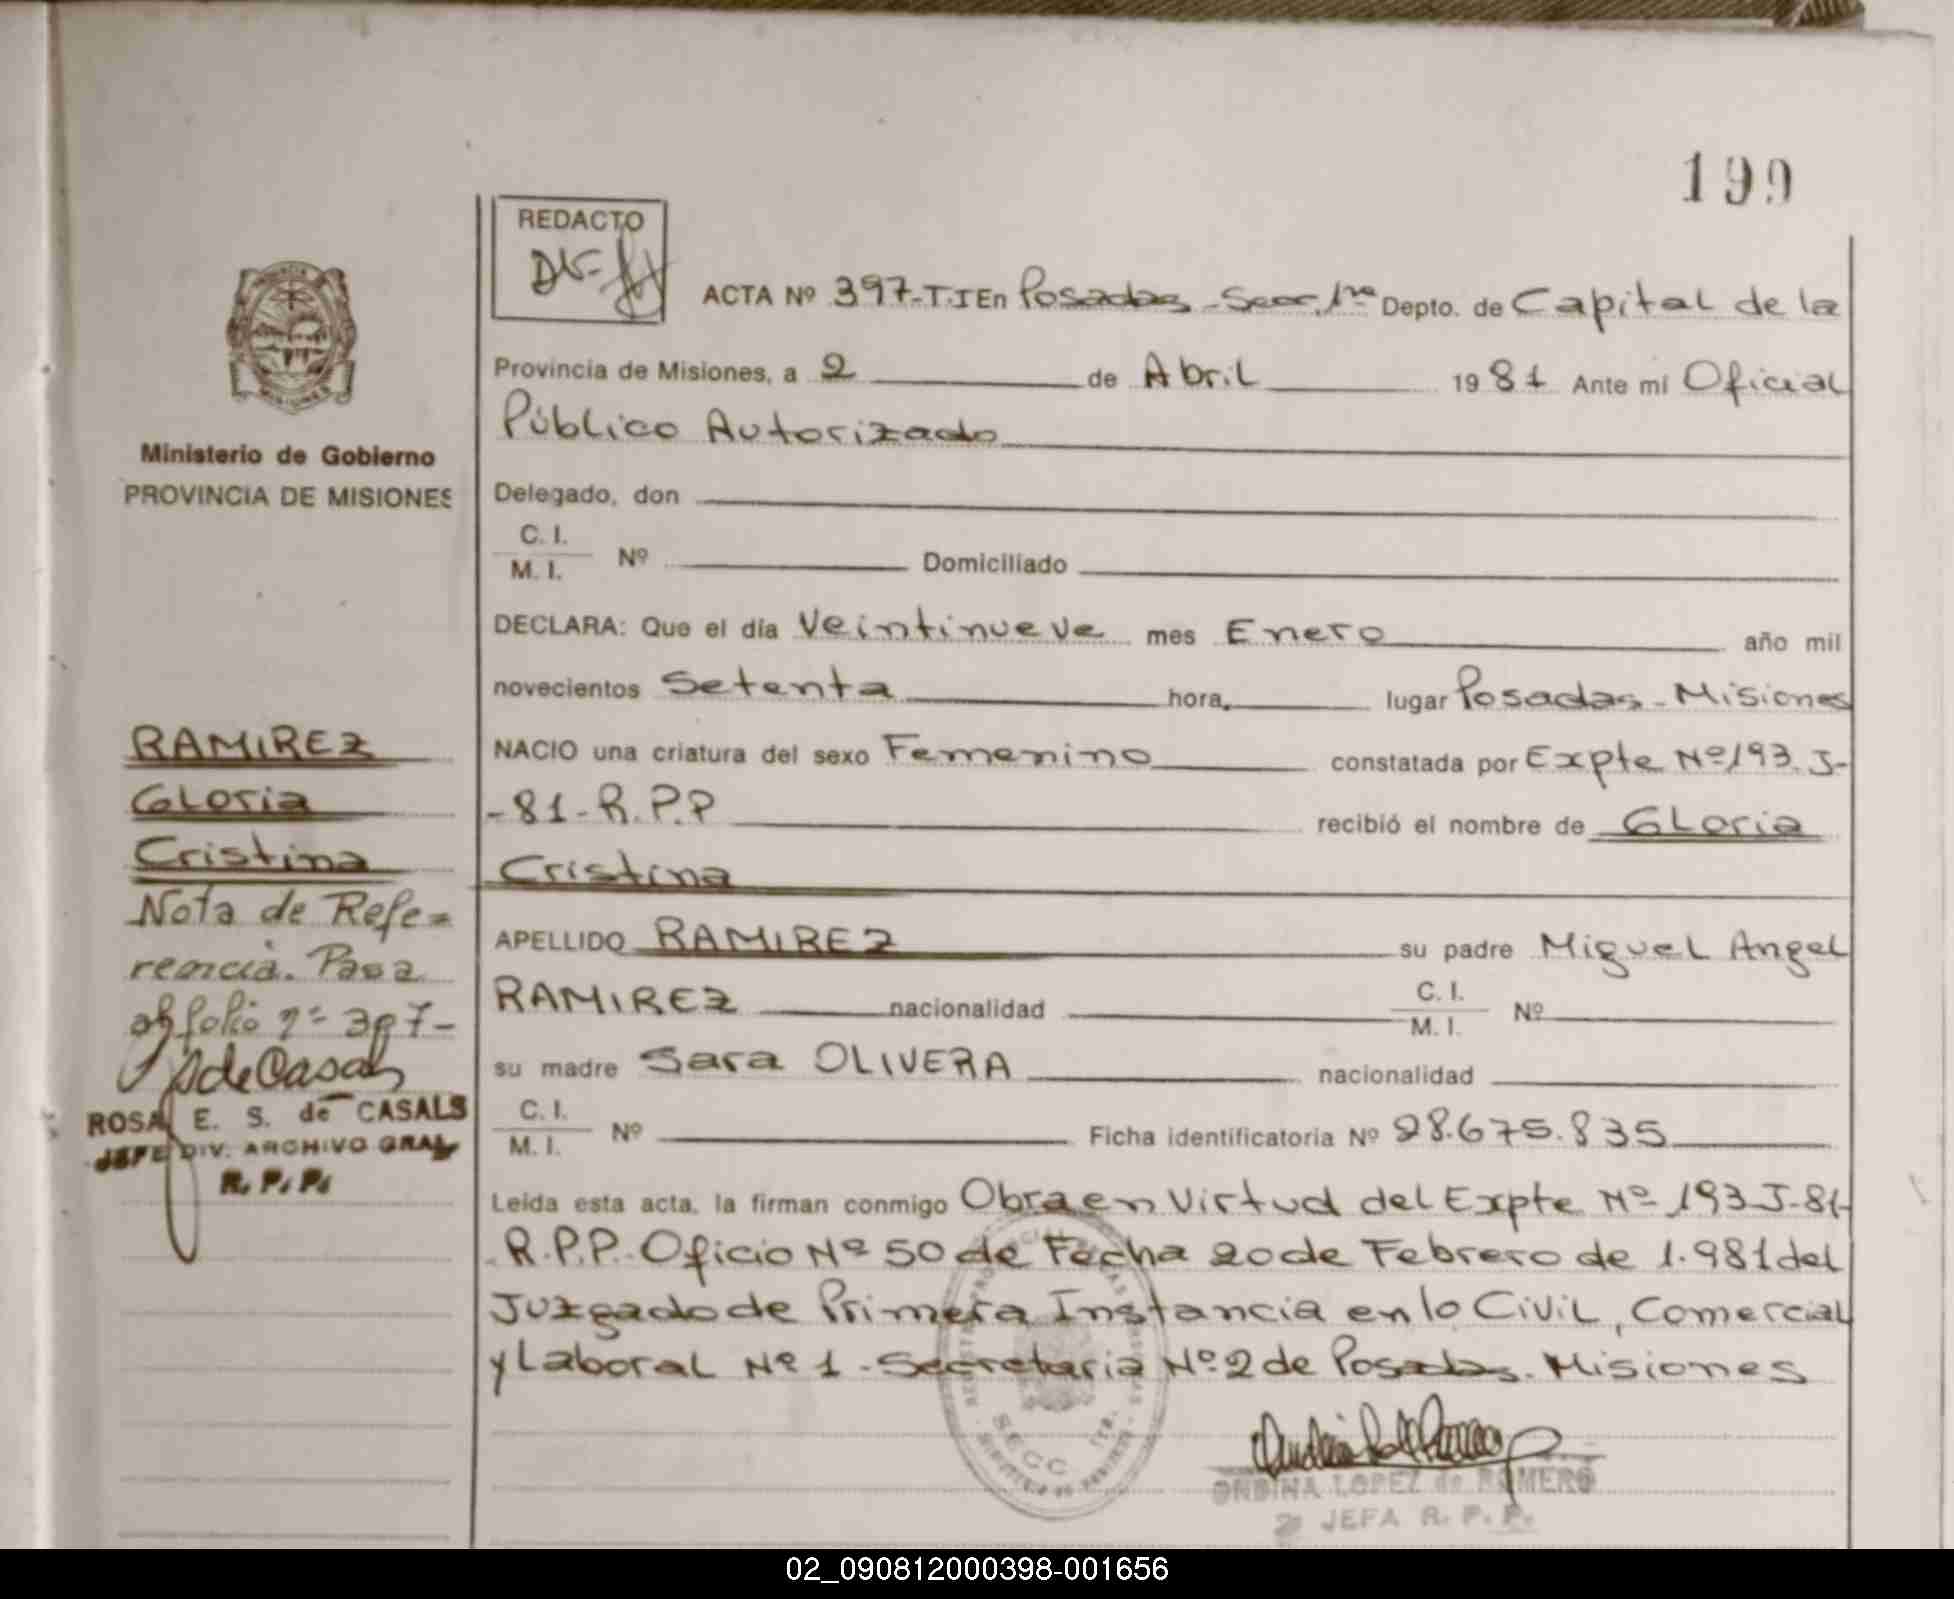 199
REDACTO
ACTA Nº 397-T.I En Posadas - Secc. 1ra Depto. de Capital de la
Provincia de Misiones, a 2 de Abril 1981 Ante mí Oficial
Público Autorizado
Ministerio de Gobierno
PROVINCIA DE MISIONES
Delegado, don
C. I.
M. I. Nº Domiciliado
DECLARA: Que el día Veintinueve mes Enero año mil
novecientos Setenta hora, lugar Posadas - Misiones
NACIO una criatura del sexo Femenino constatada por Expte Nº 193. J-
-81-R.P.P recibió el nombre de Gloria
Cristina
APELLIDO RAMIREZ su padre Miguel Angel
RAMIREZ nacionalidad C. I. M. I. Nº
su madre Sara OLIVERA nacionalidad
C. I.
M. I. Nº Ficha identificatoria Nº 28.675.835
Leída esta acta, la firman conmigo Obra en Virtud del Expte Nº 193-J-81-
-R.P.P. Oficio Nº 50 de Fecha 20 de Febrero de 1.981 del
Juzgado de Primera Instancia en lo Civil, Comercial
y Laboral Nº 1 - Secretaria Nº 2 de Posadas. Misiones
RAMIREZ
Gloria
Cristina
Nota de Refe=
rencia. Pasa
al folio nº 397-
ROSA E. S. de CASALS
JEFE DIV. ARCHIVO GRAL
R. P. P.
SECC
ONDINA LOPEZ de ROMERO
JEFA R. P. P.
02_090812000398-001656